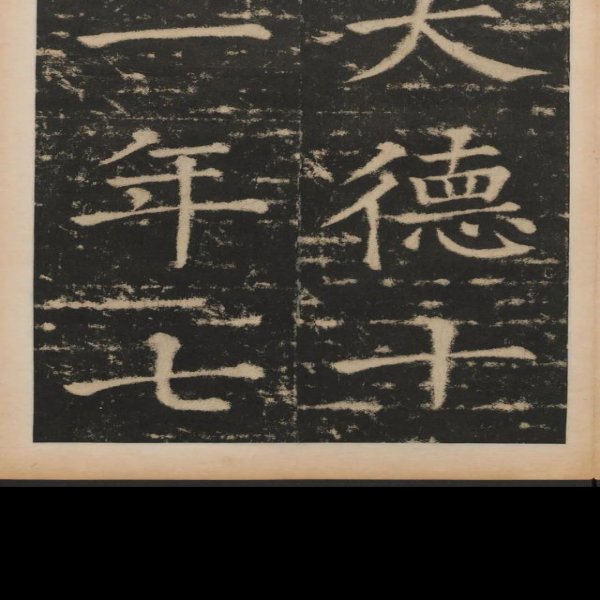 大德十
一年七